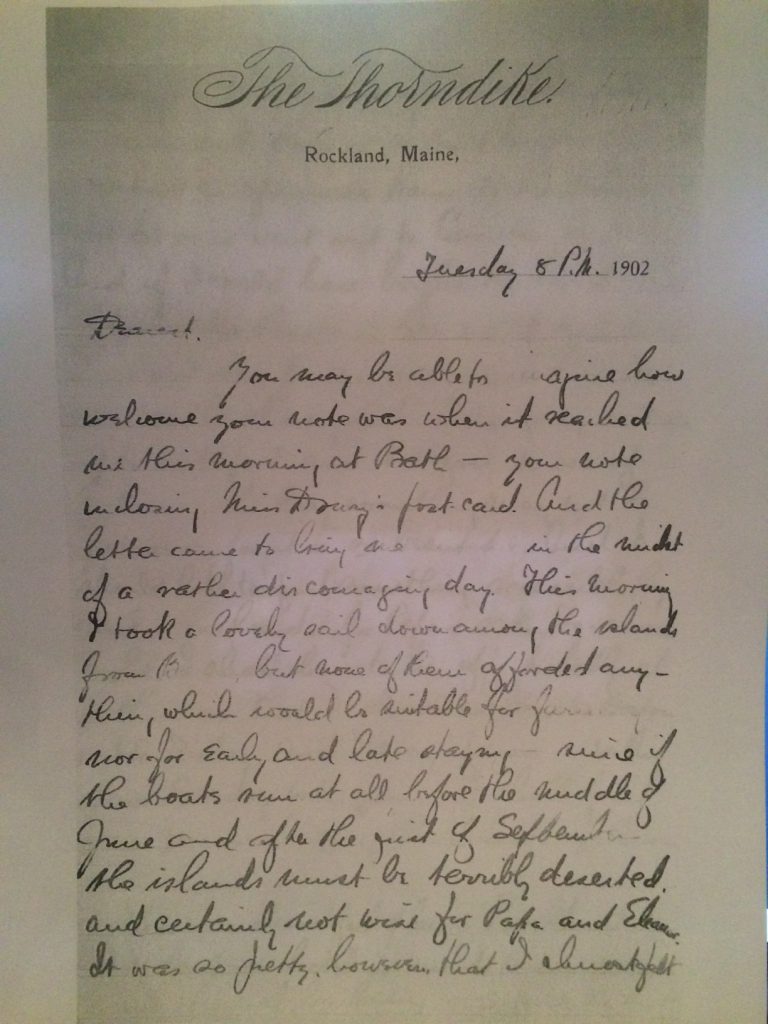 The Thorndike.
Rockland, Maine,
Tuesday 8 P.M. 1902
Dearest.
You may be able to agine how
welcome your note was when it reached
me this morning at Bath — your note
inclosing Miss Drury's post-card. And the
letter came to bring me in the midst
of a rather discouraging day. This morning
I took a lovely sail down among the islands
from B but none of them afforded any-
thing which would be suitable for
nor for early and late staying — since if
the boats run at all before the middle of
June and after the first of September
the islands must be terribly deserted.
and certainly not wise for Papa and Eleanor.
It was so pretty, however, that I almost felt